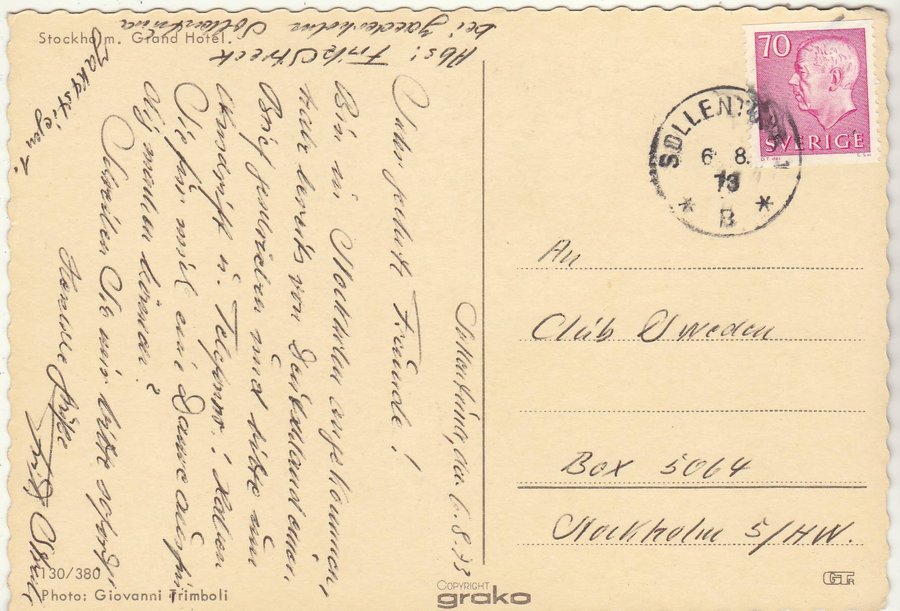 Stockholm. Grand Hotel.
Abs: Fritz Streck
bei
Sollentuna
Sollentuna, den 6.8.73
Sehr geehrte Freunde!
Bin in Stockholm angekommen,
habe bereits von Deutschland einen
Brief geschrieben und bitte um
Anschrift u. Telefonnr. Haben
Sie für mich eine Dame ausfin-
dig machen können?
Schreiben Sie mir bitte sofort.
Grüße
Fritz Streck
70
SVERIGE
SOLLENTUNA 1
6. 8.
73
* B *
An
Club Sweden
Box 5064
Stockholm 5/HW.
130/380
Photo: Giovanni Trimboli
COPYRIGHT
grako